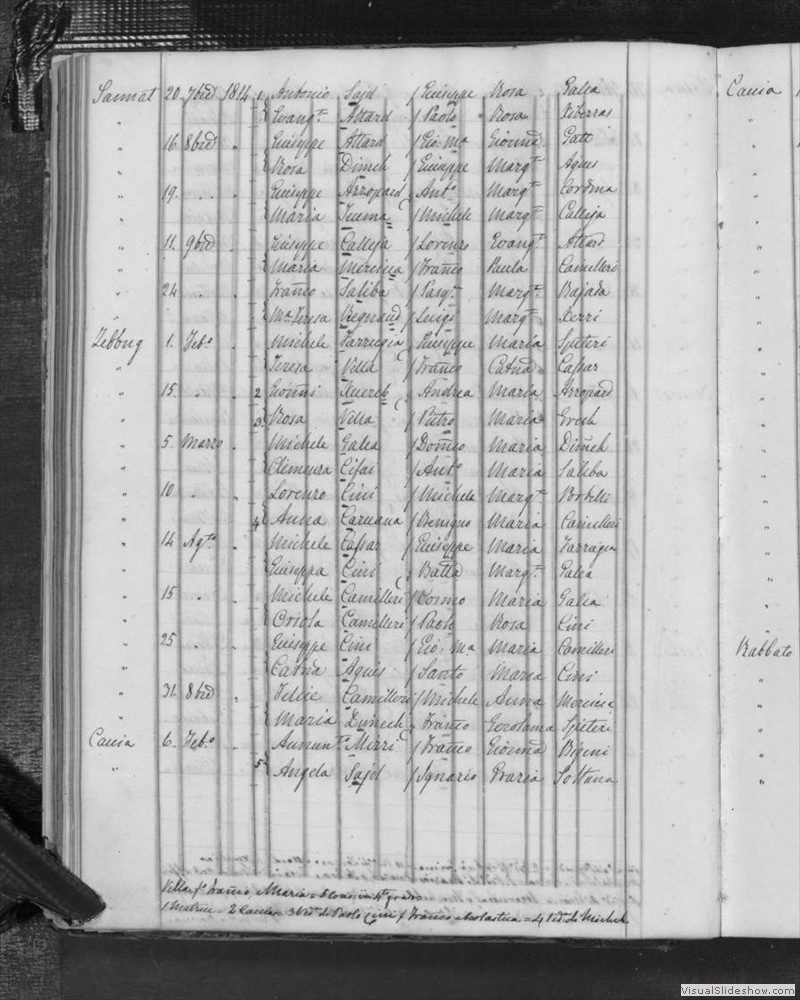 Sannat 20 7bre 1814 1 Antonio Sajd f Giuseppe Rosa Galea
" Evangta Attard f Paolo Rosa Xiberras
" 16 8bre " Giuseppe Attard f Gio: Ma Giovna Gatt
" Rosa Dimech f Giuseppe Margta Agius
" 19 " " Giuseppe Arropard f Anto Margta Cordina
" Maria Teuma f Michele Margta Calleja
" 11 9bre " Giuseppe Calleja f Lorenzo Evangta Attard
" Maria Mercieca f Franco Paula Camilleri
" 24 " " Franco Saliba f Pasqe Margta Bajada
" Ma Teresa Vegnaud f Luigi Margta Xerri
Zebbug 1 Febo " Michele Farrugia f Giuseppe Maria Spiteri
" Teresa Villa f Franco Catna Cassar
" 15 " " 2 Giovni Xuereb f Andrea Maria Arropard
" 3 Rosa Villa f Pietro Maria Grech
" 5 Marzo " Michele Galea f Domco Maria Dimech
" Clemenza Cefai f Anto Maria Saliba
" 10 " " Lorenzo Cini f Michele Margta Portelli
" 4 Anna Caruana f Benigno Maria Camilleri
" 14 Agto " Michele Cassar f Giuseppe Maria Farrugia
" Giuseppa Cini f Batta Margta Galea
" 15 " " Michele Camilleri f Cosmo Maria Galea
" Orsola Camilleri f Paolo Rosa Cini
" 25 " " Giuseppe Cini f Gio: Ma Maria Camilleri
" Catna Agius f Santo Maria Cini
" 31 8bre " Felice Camilleri f Michele Anna Mercieca
" Maria Dimech f Franco Gerolama Spiteri
Caccia 6 Febo " Annunto Mizzi f Franco Giovna Bigeni
" 5 Angela Sajd f Ignazio Grazia Soltana
Villa f Franco e Maria = in 4 grado
1 Matrice = 2 Caccia = 3 Ved. di Paolo Cini f Franco e Scolastica = 4 Ved. di Michele
Caccia
Rabbato
VisualSlideshow.com